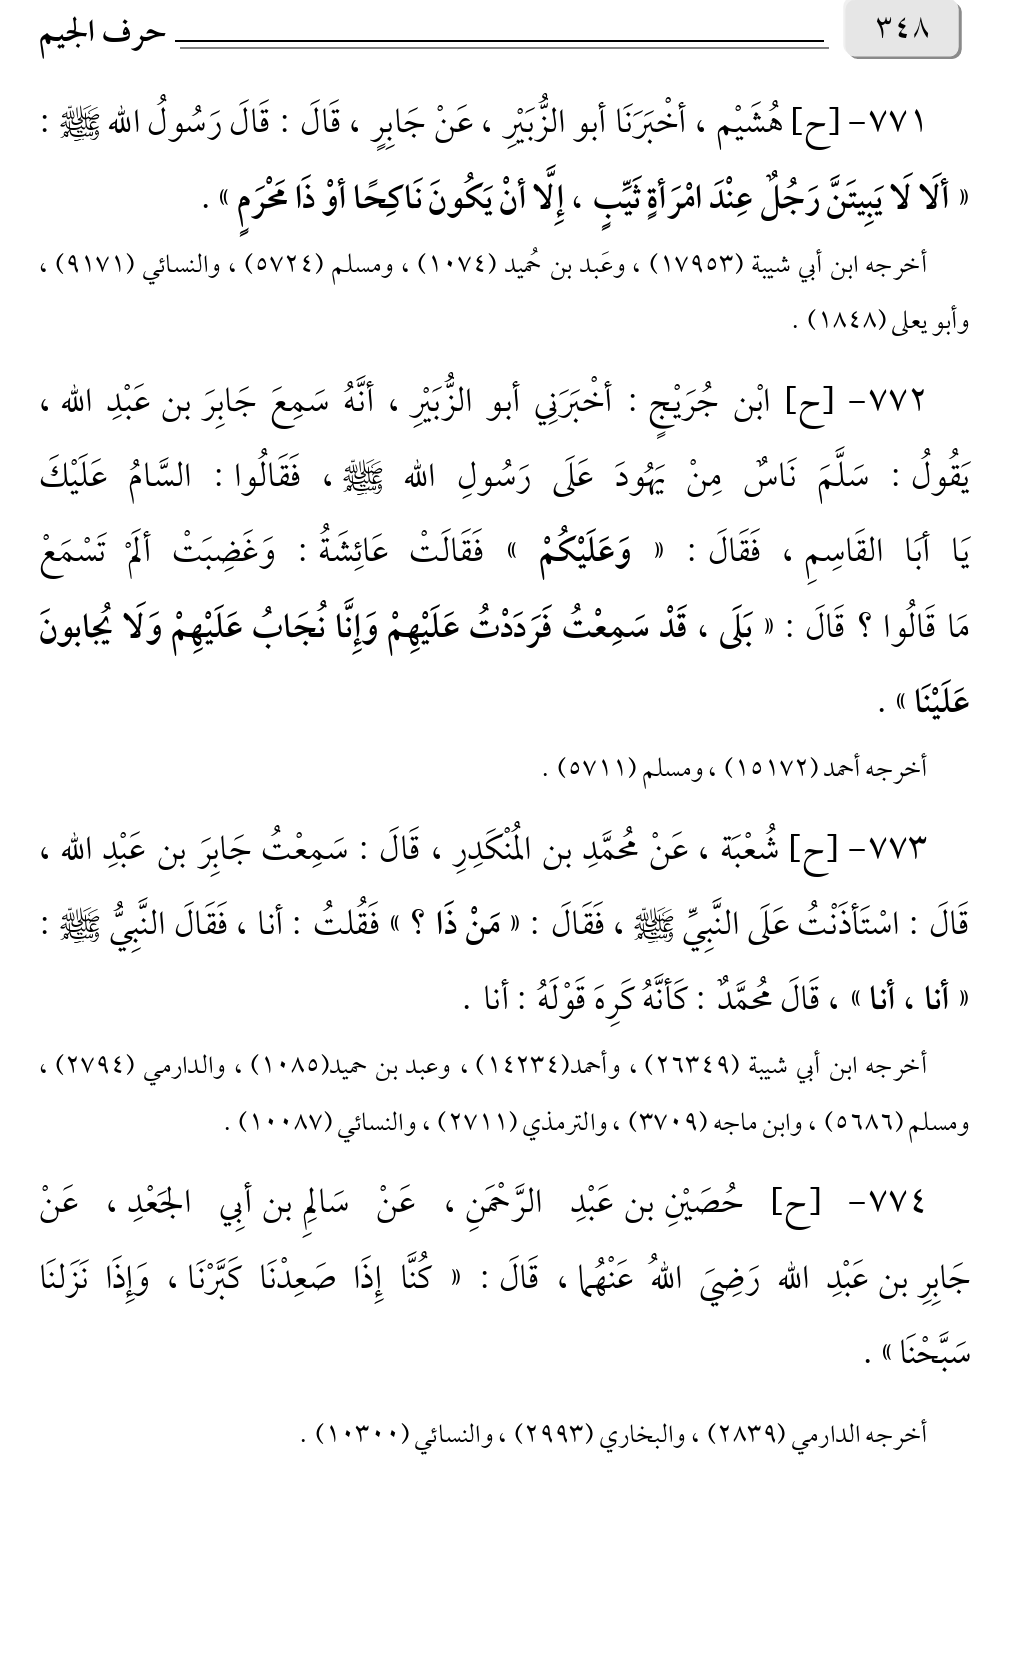 ٣٤٨
حرف الجيم
٧٧١- [ح] هُشَيْم ، أخْبَرَنَا أبو الزُّبَيْرِ ، عَنْ جَابِرٍ ، قَالَ : قَالَ رَسُولُ الله ﷺ :
« ألَا لَا يَبِيتَنَّ رَجُلٌ عِنْدَ امْرَأةٍ ثَيِّبٍ ، إِلَّا أنْ يَكُونَ نَاكِحًا أوْ ذَا مَحْرَمٍ » .
أخرجه ابن أبي شيبة (١٧٩٥٣) ، وعَبد بن حُميد (١٠٧٤) ، ومسلم (٥٧٢٤) ، والنسائي (٩١٧١) ،
وأبو يعلى (١٨٤٨) .
٧٧٢- [ح] ابْن جُرَيْجٍ : أخْبَرَنِي أبو الزُّبَيْرِ ، أنَّهُ سَمِعَ جَابِرَ بن عَبْدِ الله ،
يَقُولُ : سَلَّمَ نَاسٌ مِنْ يَهُودَ عَلَى رَسُولِ الله ﷺ ، فَقَالُوا : السَّامُ عَلَيْكَ
يَا أبَا القَاسِمِ ، فَقَالَ : « وَعَلَيْكُمْ » فَقَالَتْ عَائِشَةُ : وَغَضِبَتْ ألَمْ تَسْمَعْ
مَا قَالُوا ؟ قَالَ : « بَلَى ، قَدْ سَمِعْتُ فَرَدَدْتُ عَلَيْهِمْ وَإِنَّا نُجَابُ عَلَيْهِمْ وَلَا يُجابونَ
عَلَيْنَا » .
أخرجه أحمد (١٥١٧٢) ، ومسلم (٥٧١١) .
٧٧٣- [ح] شُعْبَة ، عَنْ مُحَمَّدِ بن المُنْكَدِرِ ، قَالَ : سَمِعْتُ جَابِرَ بن عَبْدِ الله ،
قَالَ : اسْتَأذَنْتُ عَلَى النَّبِيِّ ﷺ ، فَقَالَ : « مَنْ ذَا ؟ » فَقُلتُ : أنا ، فَقَالَ النَّبِيُّ ﷺ :
« أنا ، أنا » ، قَالَ مُحَمَّدٌ : كَأنَّهُ كَرِهَ قَوْلَهُ : أنا .
أخرجه ابن أبي شيبة (٢٦٣٤٩) ، وأحمد(١٤٢٣٤) ، وعبد بن حميد(١٠٨٥) ، والدارمي (٢٧٩٤) ،
ومسلم (٥٦٨٦) ، وابن ماجه (٣٧٠٩) ، والترمذي (٢٧١١) ، والنسائي (١٠٠٨٧) .
٧٧٤- [ح] حُصَيْنِ بن عَبْدِ الرَّحْمَنِ ، عَنْ سَالِمِ بن أبِي الجَعْدِ ، عَنْ
جَابِرِ بن عَبْدِ الله رَضِيَ اللهُ عَنْهُما ، قَالَ : « كُنَّا إِذَا صَعِدْنَا كَبَّرْنَا ، وَإِذَا نَزَلنَا
سَبَّحْنَا » .
أخرجه الدارمي (٢٨٣٩) ، والبخاري (٢٩٩٣) ، والنسائي (١٠٣٠٠) .